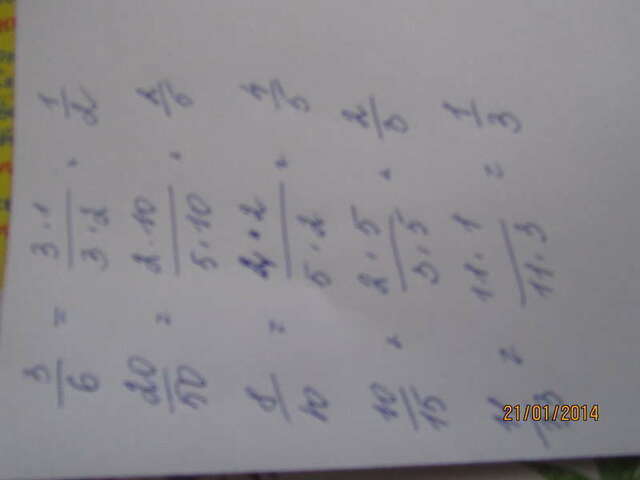 3/6 = 3·1/3·2 = 1/2
20/50 = 2·10/5·10 = 2/5
8/10 = 4·2/5·2 = 4/5
10/15 = 2·5/3·5 = 2/3
11/33 = 11·1/11·3 = 1/3
21/01/2014